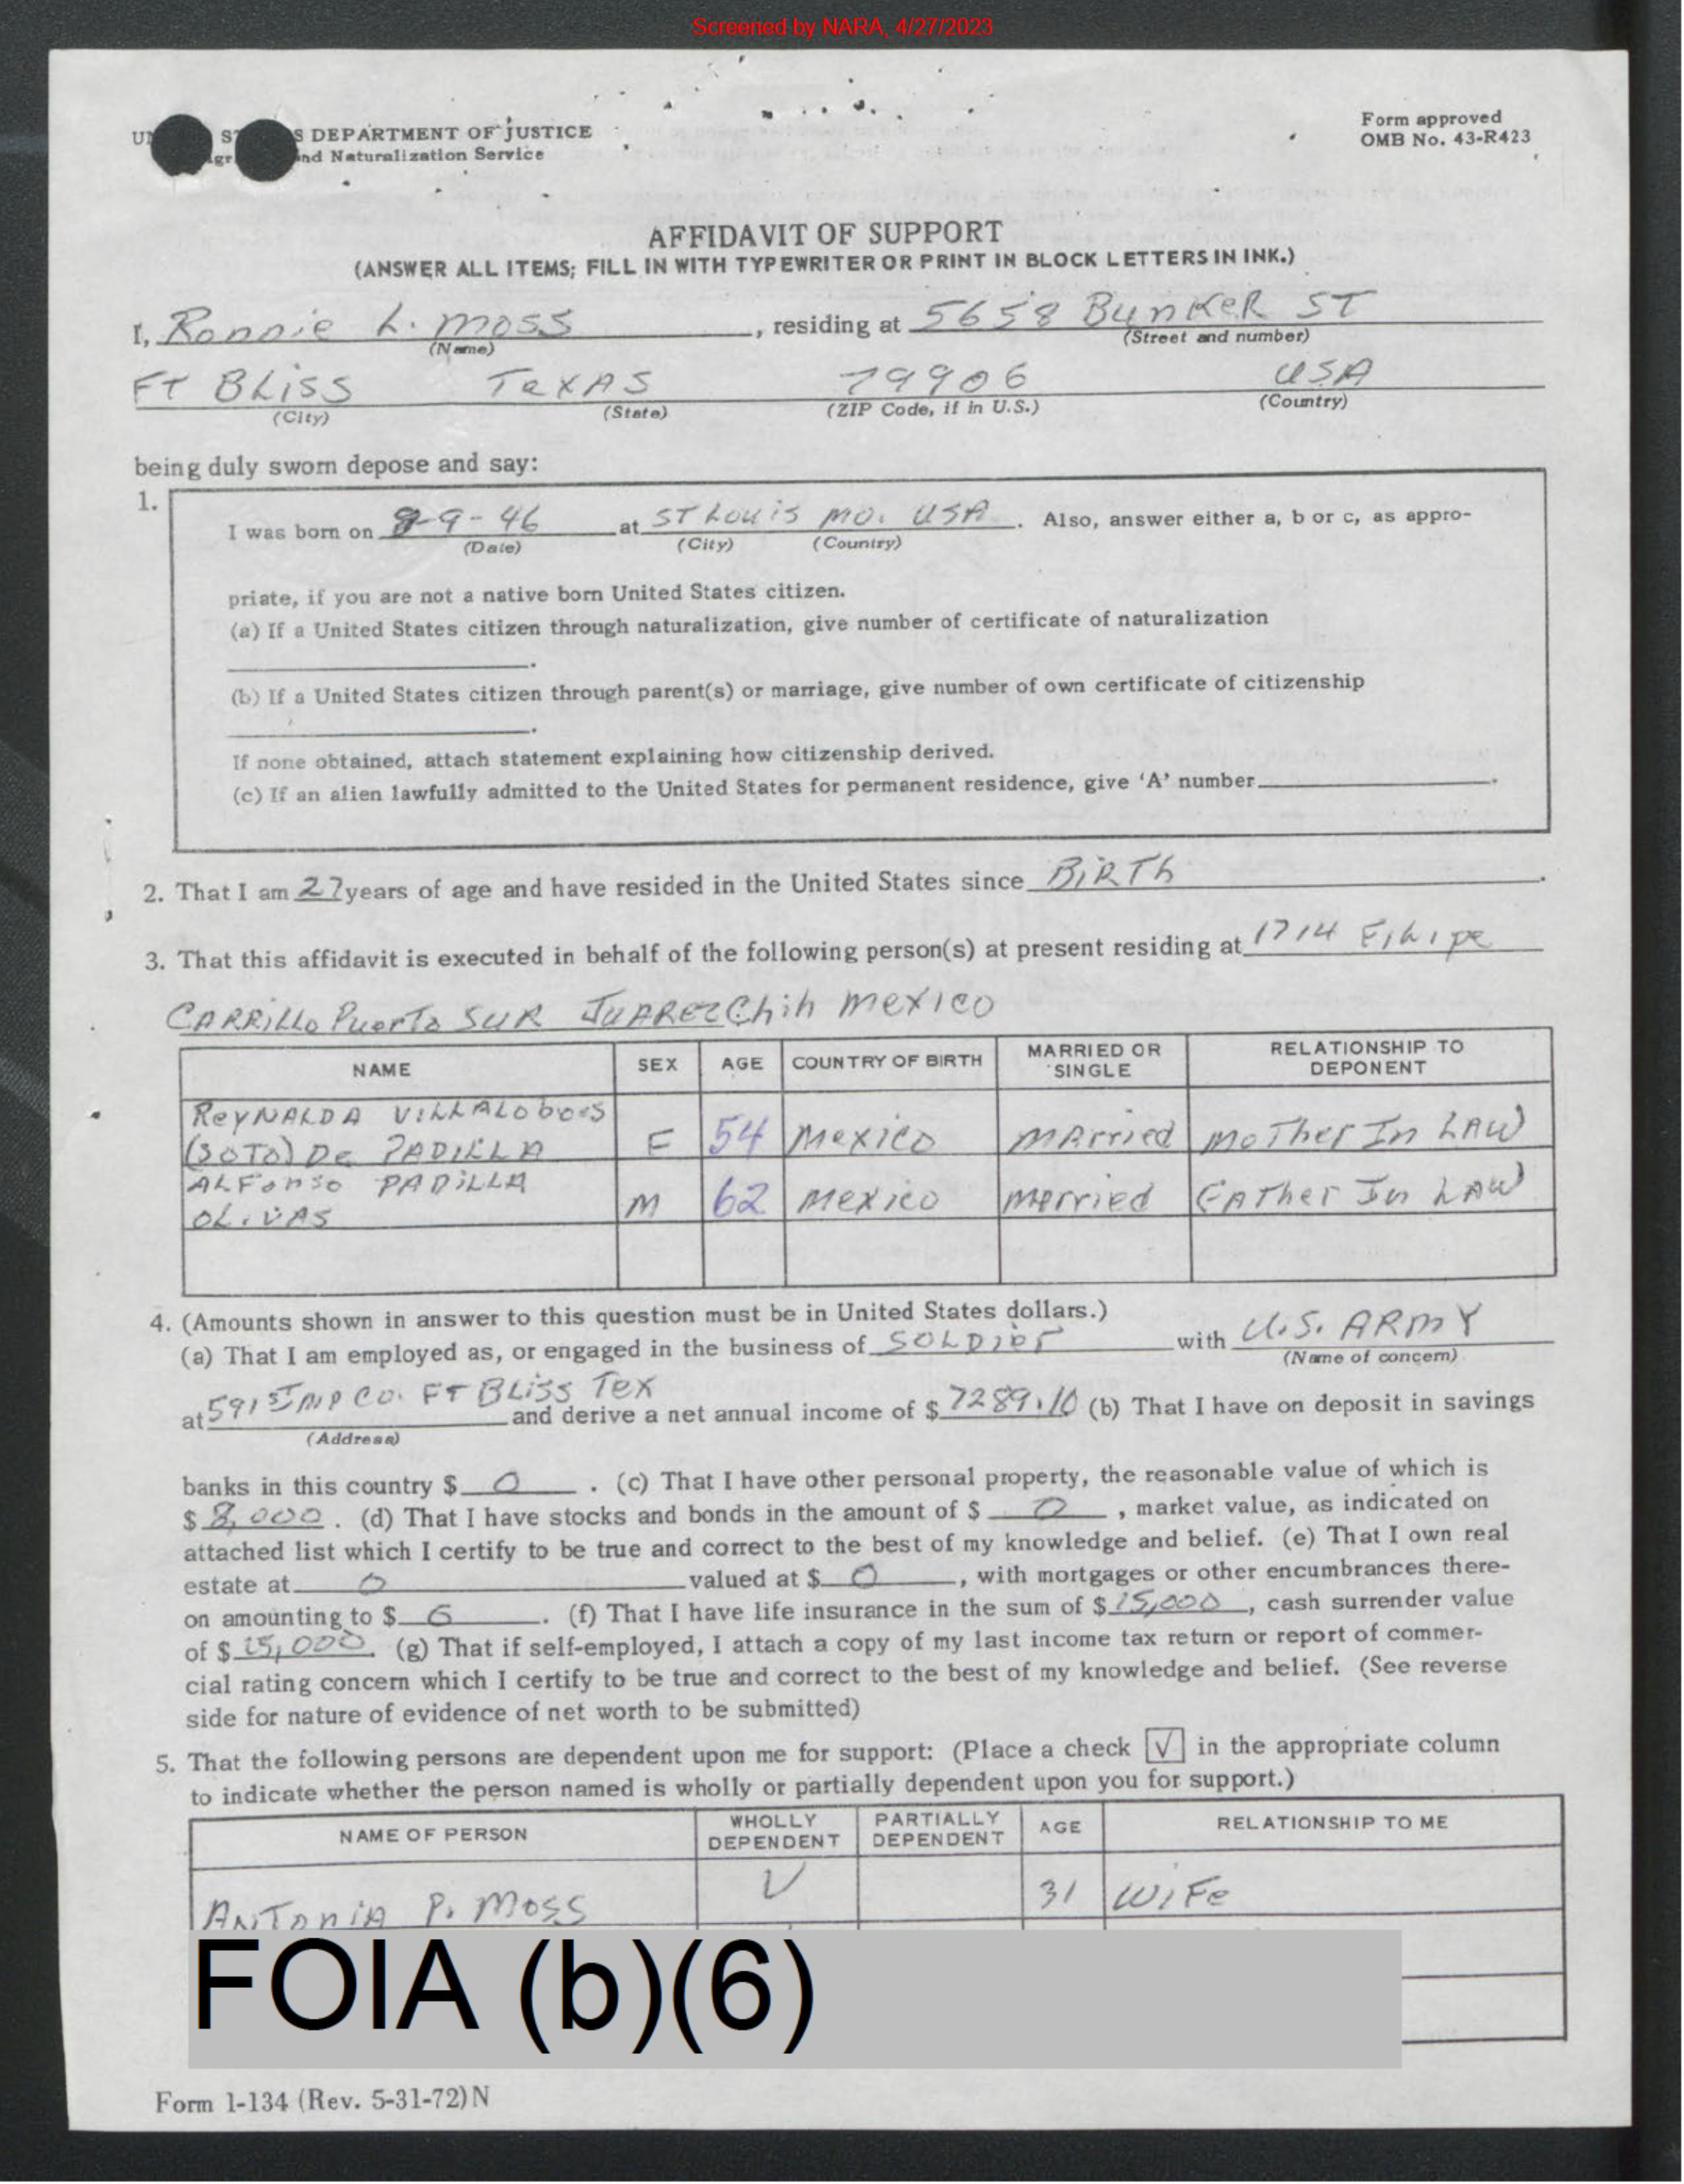 Screened by NARA, 4/27/2023
S DEPARTMENT OF JUSTICE
and Naturalization Service
Form approved
OMB No. 43-R423
AFFIDAVIT OF SUPPORT
(ANSWER ALL ITEMS; FILL IN WITH TYPEWRITER OR PRINT IN BLOCK LETTERS IN INK.)
I, Ronnie L. Moss, residing at 5658 Bunker ST
(Name) (Street and number)
FT BLiSS TeXAS 79906 USA
(City) (State) (ZIP Code, if in U.S.) (Country)
being duly sworn depose and say:
1.
I was born on 8-9-46 at ST Louis Mo. USA. Also, answer either a, b or c, as appro-
(Date) (City) (Country)
priate, if you are not a native born United States citizen.
(a) If a United States citizen through naturalization, give number of certificate of naturalization
.
(b) If a United States citizen through parent(s) or marriage, give number of own certificate of citizenship
.
If none obtained, attach statement explaining how citizenship derived.
(c) If an alien lawfully admitted to the United States for permanent residence, give 'A' number.
2. That I am 27 years of age and have resided in the United States since BiRTh.
3. That this affidavit is executed in behalf of the following person(s) at present residing at 1714 Filipe
CARRiLLo Puerto SUR JUAREZ Chih Mexico
NAME SEX AGE COUNTRY OF BIRTH MARRIED OR SINGLE RELATIONSHIP TO DEPONENT
ReYNALDA ViLLALobos
(SOTO) De PADiLLA F 54 Mexico MArried MoTher In LAW
ALFonso PADiLLA
OLiVAS M 62 Mexico Merried FATher In LAW
4. (Amounts shown in answer to this question must be in United States dollars.)
(a) That I am employed as, or engaged in the business of SOLDier with U.S. ARMY
(Name of concern)
at 591ST MP CO. FT BLiSS Tex and derive a net annual income of $7289.10 (b) That I have on deposit in savings
(Address)
banks in this country $ 0. (c) That I have other personal property, the reasonable value of which is
$ 8,000. (d) That I have stocks and bonds in the amount of $ 0, market value, as indicated on
attached list which I certify to be true and correct to the best of my knowledge and belief. (e) That I own real
estate at 0 valued at $ 0, with mortgages or other encumbrances there-
on amounting to $ 0. (f) That I have life insurance in the sum of $15,000, cash surrender value
of $ 15,000. (g) That if self-employed, I attach a copy of my last income tax return or report of commer-
cial rating concern which I certify to be true and correct to the best of my knowledge and belief. (See reverse
side for nature of evidence of net worth to be submitted)
5. That the following persons are dependent upon me for support: (Place a check √ in the appropriate column
to indicate whether the person named is wholly or partially dependent upon you for support.)
NAME OF PERSON WHOLLY DEPENDENT PARTIALLY DEPENDENT AGE RELATIONSHIP TO ME
ANTONiA P. Moss √ 31 WiFe
FOIA (b)(6)
Form I-134 (Rev. 5-31-72) N